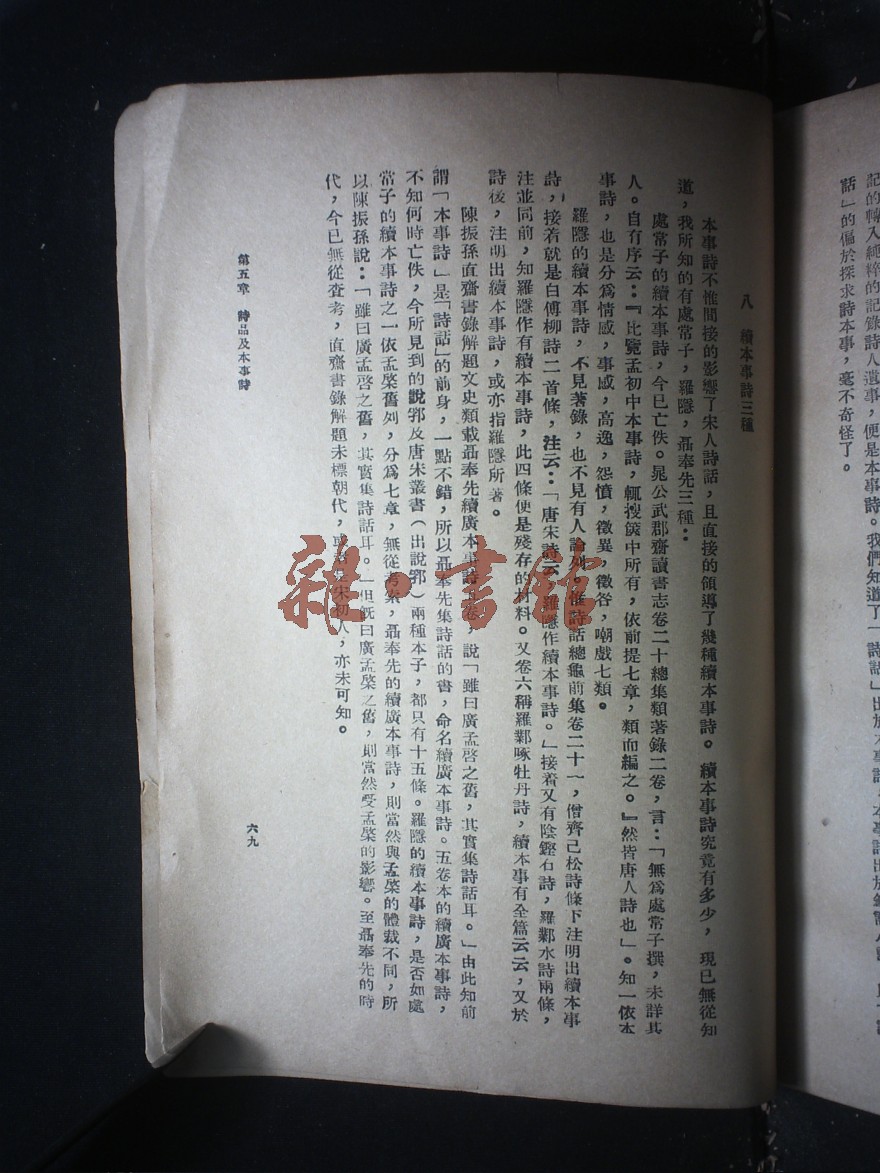 記的轉入純粹的記錄詩人遺事，便是本事詩。我們知道了「詩話」出於本事詩，本事詩出於
話」的偏於探求詩本事，毫不奇怪了。
八　續本事詩三種
本事詩不惟間接的影響了宋人詩話，且直接的領導了幾種續本事詩。續本事詩究竟有多少，現已無從知
道，我所知的有處常子，羅隱，聶奉先三種：
處常子的續本事詩，今已亡佚。晁公武郡齋讀書志卷二十總集類著錄二卷，言：「無為處常子撰，未詳其
人。自有序云：『比覽孟初中本事詩，輒搜篋中所有，依前提七章，類而編之。』然皆唐人詩也」。知一依本
事詩，也是分為情感，事感，高逸，怨憤，徵異，徵咎，嘲戲七類。
羅隱的續本事詩，不見著錄，也不見有人論列。惟詩話總龜前集卷二十一，僧齊己松詩條下注明出續本事
詩，接着就是白傅柳詩二首條，注云：「唐宋詩云，羅隱作續本事詩。」接着又有陰鏗石詩，羅鄴水詩兩條，
注並同前，知羅隱作有續本事詩，此四條便是殘存的材料。又卷六稱羅鄴啄牡丹詩，續本事有全篇云云，又於
詩後，注明出續本事詩，或亦指羅隱所著。
陳振孫直齋書錄解題文史類載聶奉先續廣本事詩 卷，說「雖曰廣孟啓之舊，其實集詩話耳。」由此知前
謂「本事詩」是「詩話」的前身，一點不錯，所以聶奉先集詩話的書，命名續廣本事詩。五卷本的續廣本事詩，
不知何時亡佚，今所見到的說郛及唐宋叢書（出說郛）兩種本子，都只有十五條。羅隱的續本事詩，是否如處
常子的續本事詩之一依孟棨舊列，分為七章，無從考案，聶奉先的續廣本事詩，則當然與孟棨的體裁不同，所
以陳振孫說：「雖曰廣孟啓之舊，其實集詩話耳。」但既曰廣孟棨之舊，則當然受孟棨的影響。至聶奉先的時
代，今已無從查考，直齋書錄解題未標朝代，宋初人，亦未可知。
第五章　詩品及本事詩
六九
雜·書館